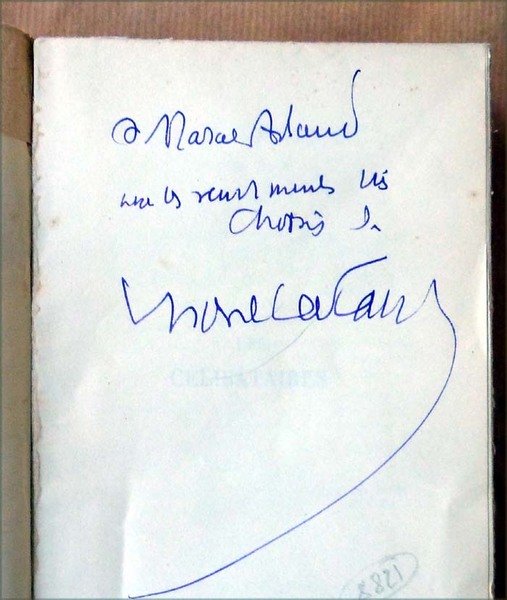 à Marcel Arland
avec les sentiments très
choisis de
Montherlant
LES
CELIBATAIRES